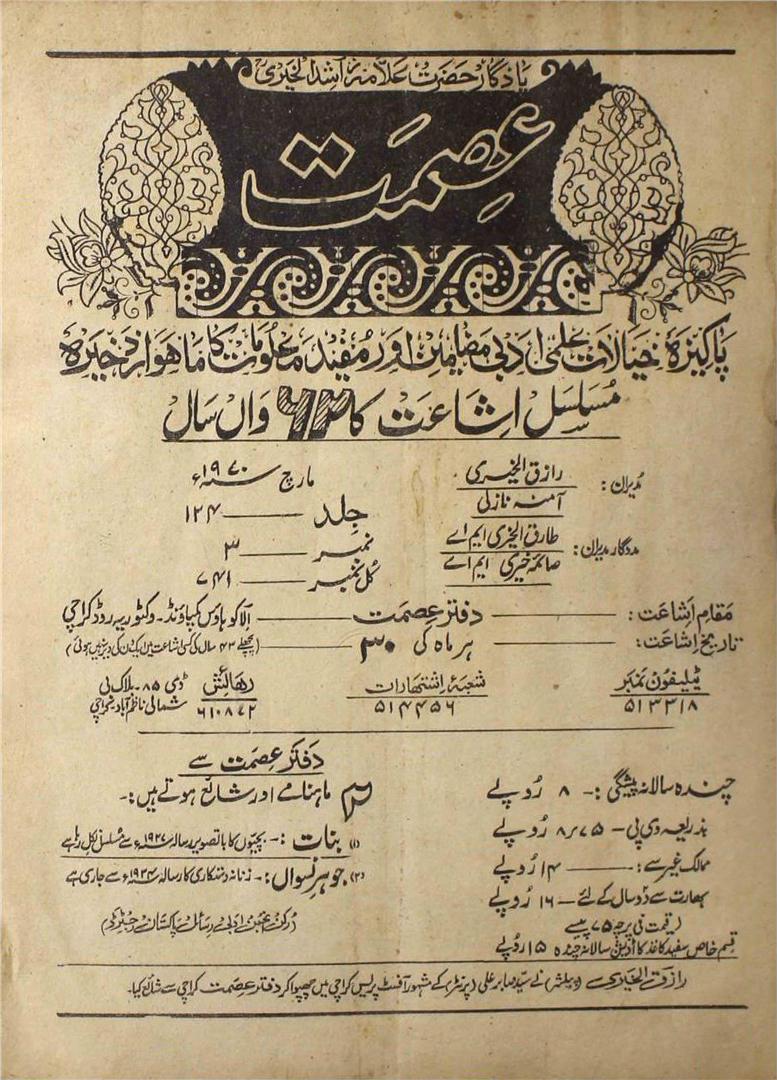 یادگار حضرت علامہ راشد الخیری
عصمت
پاکیزہ خیالات علمی ادبی مضامین اور مفید معلومات کا ماہوار ذخیرہ
مسلسل اشاعت کا ۶۲ واں سال
مدیران: رازق الخیری
آمنہ نازلی
مددگار مدیران: طارق الخیری ایم اے
صائمہ خیری ایم اے
مارچ سنہ ۱۹۷۰ء
جلد ــــ ۱۲۴
نمبر ــــ ۳
کل نمبر ــــ ۷۴۱
مقام اشاعت: ــــ دفتر عصمت ــــ الآکو ہاؤس کمپاؤنڈ۔ وکٹوریہ روڈ کراچی
تاریخ اشاعت: ــــ ہر ماہ کی ۳۰ ــــ (پچھلے ۴۳ سال کی کسی اشاعت میں ایک دن کی دیر نہیں ہوئی)
ٹیلیفون نمبر
۵۱۳۳۱۸
شعبۂ اشتہارات
۵۱۴۴۵۶
رہائش
۶۱۰۸۷۲
ڈی ۸۵۔ بلاک بی
شمالی ناظم آباد کراچی
چندہ سالانہ پیشگی :- ۸ روپے
بذریعہ وی پی - ۸٫۷۵ روپے
ممالک غیر سے: ــــ ۱۴ روپے
بھارت سے دو سال کے لئے - ۱۶ روپے
(قیمت فی پرچہ ۷۵ پیسے
قسم خاص سفید کاغذ کا ایڈیشن سالانہ چندہ ۱۵ روپے
دفتر عصمت سے
۲ ماہنامے اور شائع ہوتے ہیں:-
(۱) بنات :- بچیوں کا باتصویر رسالہ سنہ ۱۹۲۷ء سے مسلسل نکل رہا ہے
(۲) جوہر نسواں :- زنانہ دستکاری کا رسالہ سنہ ۱۹۳۴ء سے جاری ہے
(رکن انجمن ادبی رسائل پاکستان رجسٹرڈ)
رازق الخیری (پبلشر) نے سید صابر علی (پرنٹر) کے مشہور آفسٹ پریس کراچی میں چھپوا کر دفتر عصمت کراچی سے شائع کیا۔